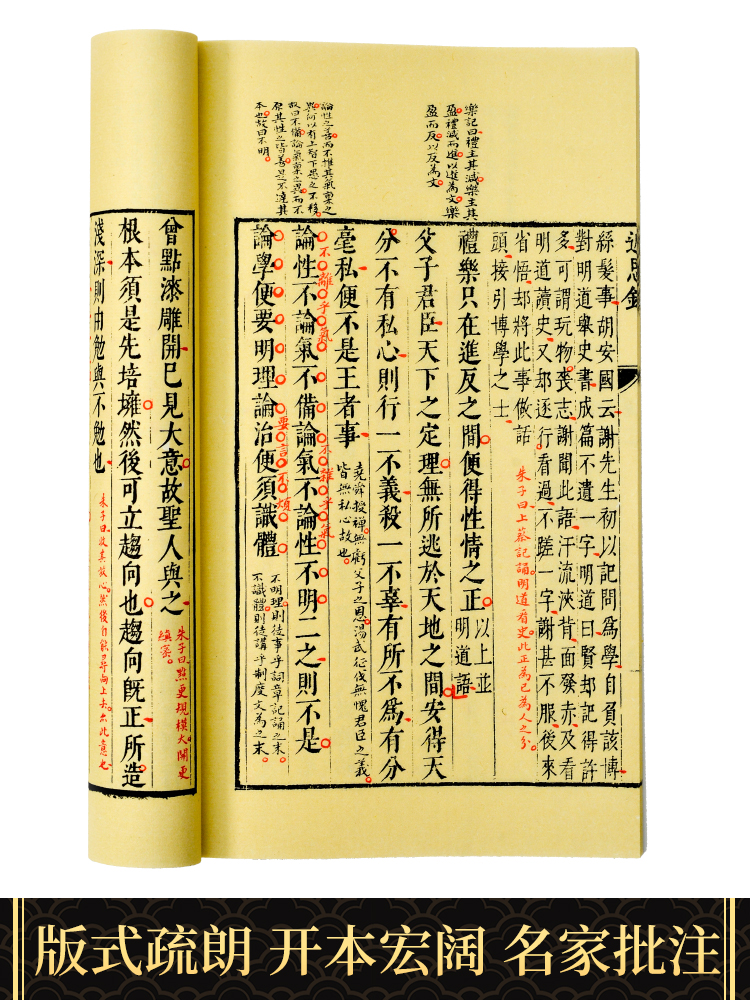 近思錄
絲髮事胡安國云謝先生初以記問爲學自負該博
對明道舉史書成篇不遺一字明道曰賢却記得許
多可謂玩物喪志謝聞此語汗流浹背面發赤及看
明道讀史又却逐行看過不蹉一字謝甚不服後來
省悟却將此事做話
頭接引博學之士
朱子曰上蔡記誦明道看史此正爲己爲人之分
樂記曰禮主其減樂主其
盈禮減而進以進為文樂
盈而反以反為文
禮樂只在進反之間便得性情之正
以上並
明道語
父子君臣天下之定理無所逃於天地之間安得天
分不有私心則行一不義殺一不辜有所不爲有分
毫私便不是王者事
堯舜授禪無虧父子之恩湯武征伐無愧君臣之義
皆無私心故也
論性之善而不推其氣稟之
異何以有上智下愚之不移
故曰不備論氣稟之異而不
原其性之皆善是不達其
本也故曰不明
論性不論氣不備論氣不論性不明二之則不是
不離乎氣
不雜乎氣
論學便要明理論治便須識體
要言不煩
不明理則徒事乎詞章記誦之末
不識體則徒講乎制度文為之末
曾點漆雕開已見大意故聖人與之
朱子曰點更規模大開更
縝密
根本須是先培壅然後可立趨向也趨向旣正所造
淺深則由勉與不勉也
朱子曰收其放心然後自能尋向上去亦此意也
版式疏朗 开本宏阔 名家批注